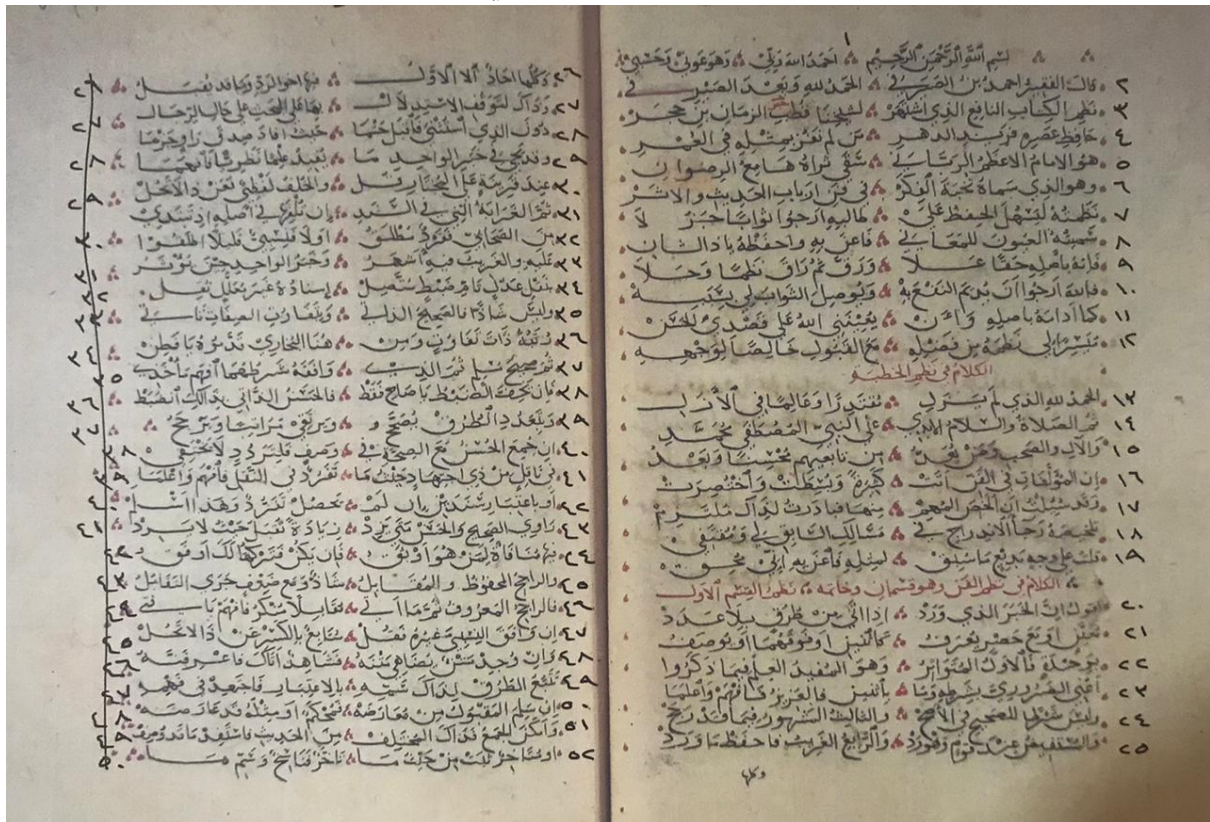 ١
بسم الله الرحمن الرحيم احمد الله ربي وهو عوني وحسبي
٢ قال الفقير احمد بن الصيرفي الحمد لله وبعد الصير في
٣ نظم الكتاب النافع الذي اشتهر لشيخنا قطب الزمان بن حجر
٤ حافظ عصره فريد الدهر من لم نفز بمثله في العصر
٥ هو الامام الاعظم الرباني سقى ثراه هامع الرضوان
٦ وهو الذي سماه نخبة الفكر في فن ارباب الحديث والاثر
٧ نظمته ليسهل الحفظ علي طالبه ارجوا ثوابا جز لا
٨ سميته العيون للمعاني فاعن به واحفظه ياذا الشان
٩ فانه باصله حقا علا ورق ثم راق نظما وحلا
١٠ فالله ارجوا ان يديم النفع به ويوصل الثواب لي بسببه
١١ كما ادانه باصله وان يعينني الله على قصدي الحسن
١٢ ميسرا لي نظمه من فضله مع القبول خالصا لوجهه
الكلام في نظم الخطبة
١٣ الحمد لله الذي لم يزل مقتدرا وعالما في الازل
١٤ ثم الصلاة والسلام على النبي المصطفى محمد
١٥ والآل والصحب ومن من تابعيهم محسنا وبعد
١٦ ان المؤلفات في الفن اتت كثيرة وبسطت واختصرت
١٧ وقد سئلت ان الخص المهم منها فبادرت لذاك ملتزم
١٨ تلخيصه رجا الاندراج في مسالك السابق لي ومقتفي
١٩ قلت على وجه بديع ما سبق لمثله فاعن به اني محق
الكلام في نظم الفن وهو قسمان وخاتمه نظم القسم الاول
٢٠ اقول ان الخبر الذي ورد اذا اتى من طرق بلا عدد
٢١ معين او مع حصر يعرف كاثنين او فوقهما او يوصف
٢٢ بوحدة فالاول المتواتر وهو المفيد العلم فيما ذكروا
٢٣ اعني الضروري بشرطه وما باثنين فالعزيز فافهم واعلما
٢٤ وليس شرطا للصحيح في الاصح والثالث المشهور فيما قد رجح
٢٥ والمستفيض عند قوم والرابع الغريب فاحفظ ما ورد
وكلها
٢٦ وكلها احاد الا الاول فيها اخو الرد وما قد يقبل
٢٧ وذاك لتوقف الاستدلال بها على البحث على حال الرجال
٢٨ دون الذي استثني فاقبل حتما حيث افاد صدق راو جزما
٢٩ وقد يجي في خبر الواحد ما يفيد علما نظريا فافهما
٣٠ عند قرينة على المختار قل والخلف لفظي نعن ذا لا تحل
٣١ ثم الغرابة التي في السند ان تلفها في اصله اذ تبتدي
٣٢ من الصحابي ففرد مطلق او لا فنسبي قليلا اطلقوا
٣٣ عليه والغريب فيه اشهر وخبر الواحد حين يؤثر
٣٤ بنقل عدل تام ضبط متصل اسناده غير معلل نقل
٣٥ وليس شاذا فالصحيح الذاتي وبتفاوت الصفات ياتي
٣٦ رتبة ذات تفاوت ومن هنا البخاري قدموه يا فطن
٣٧ ثم صحيح مسلم ثم الذي وافقه شرطهما افهم ماخذي
٣٨ فان يخف الضبط يا صاح فقط فالحسن الذاتي بذاك انضبط
٣٩ وبتعدد الطرق يصحح و ويرتقي مراتبا ويرجح
٤٠ ان جمع الحسن مع الصحة في وصف فلتردد لا تختفي
٤١ في ناقل من ذي اجتهاد حيث ما تفرد في النقل فافهم واعلما
٤٢ او باعتبار سندين ان لم تحصل تفرد وهذا اسلم
٤٣ وراوي الصحيح والحسن متى يزد زيادة تقبل حيث لا يرد
٤٤ فيها منافاة لمن هو اوثق فان يكن فتركها لك اوفق
٤٥ والراجح المحفوظ والمقابل شاذ ومع ضعف جرى التقابل
٤٦ فالراجح المعروف ثم ما اتى مقابلا منكر فافهم يا فتى
٤٧ ان وافق النسبي غيره فقل متابع بالكسر عن ذا لا تحل
٤٨ وان وجد متن يضاهي متنه فشاهد اتاك فاعرفنه
٤٩ تتبع الطرق لذاك سمه بالاعتبار فاجهد في فهمه
٥٠ ان سلم المقبول من معارضه فمحكم او مثله قد عارضه
٥١ وامكن الجمع فذاك المختلف من الحديث فاستفد ما قد وصف
٥٢ او متاخر ثبت من حيث ما تاخر فناسخ وعنهم